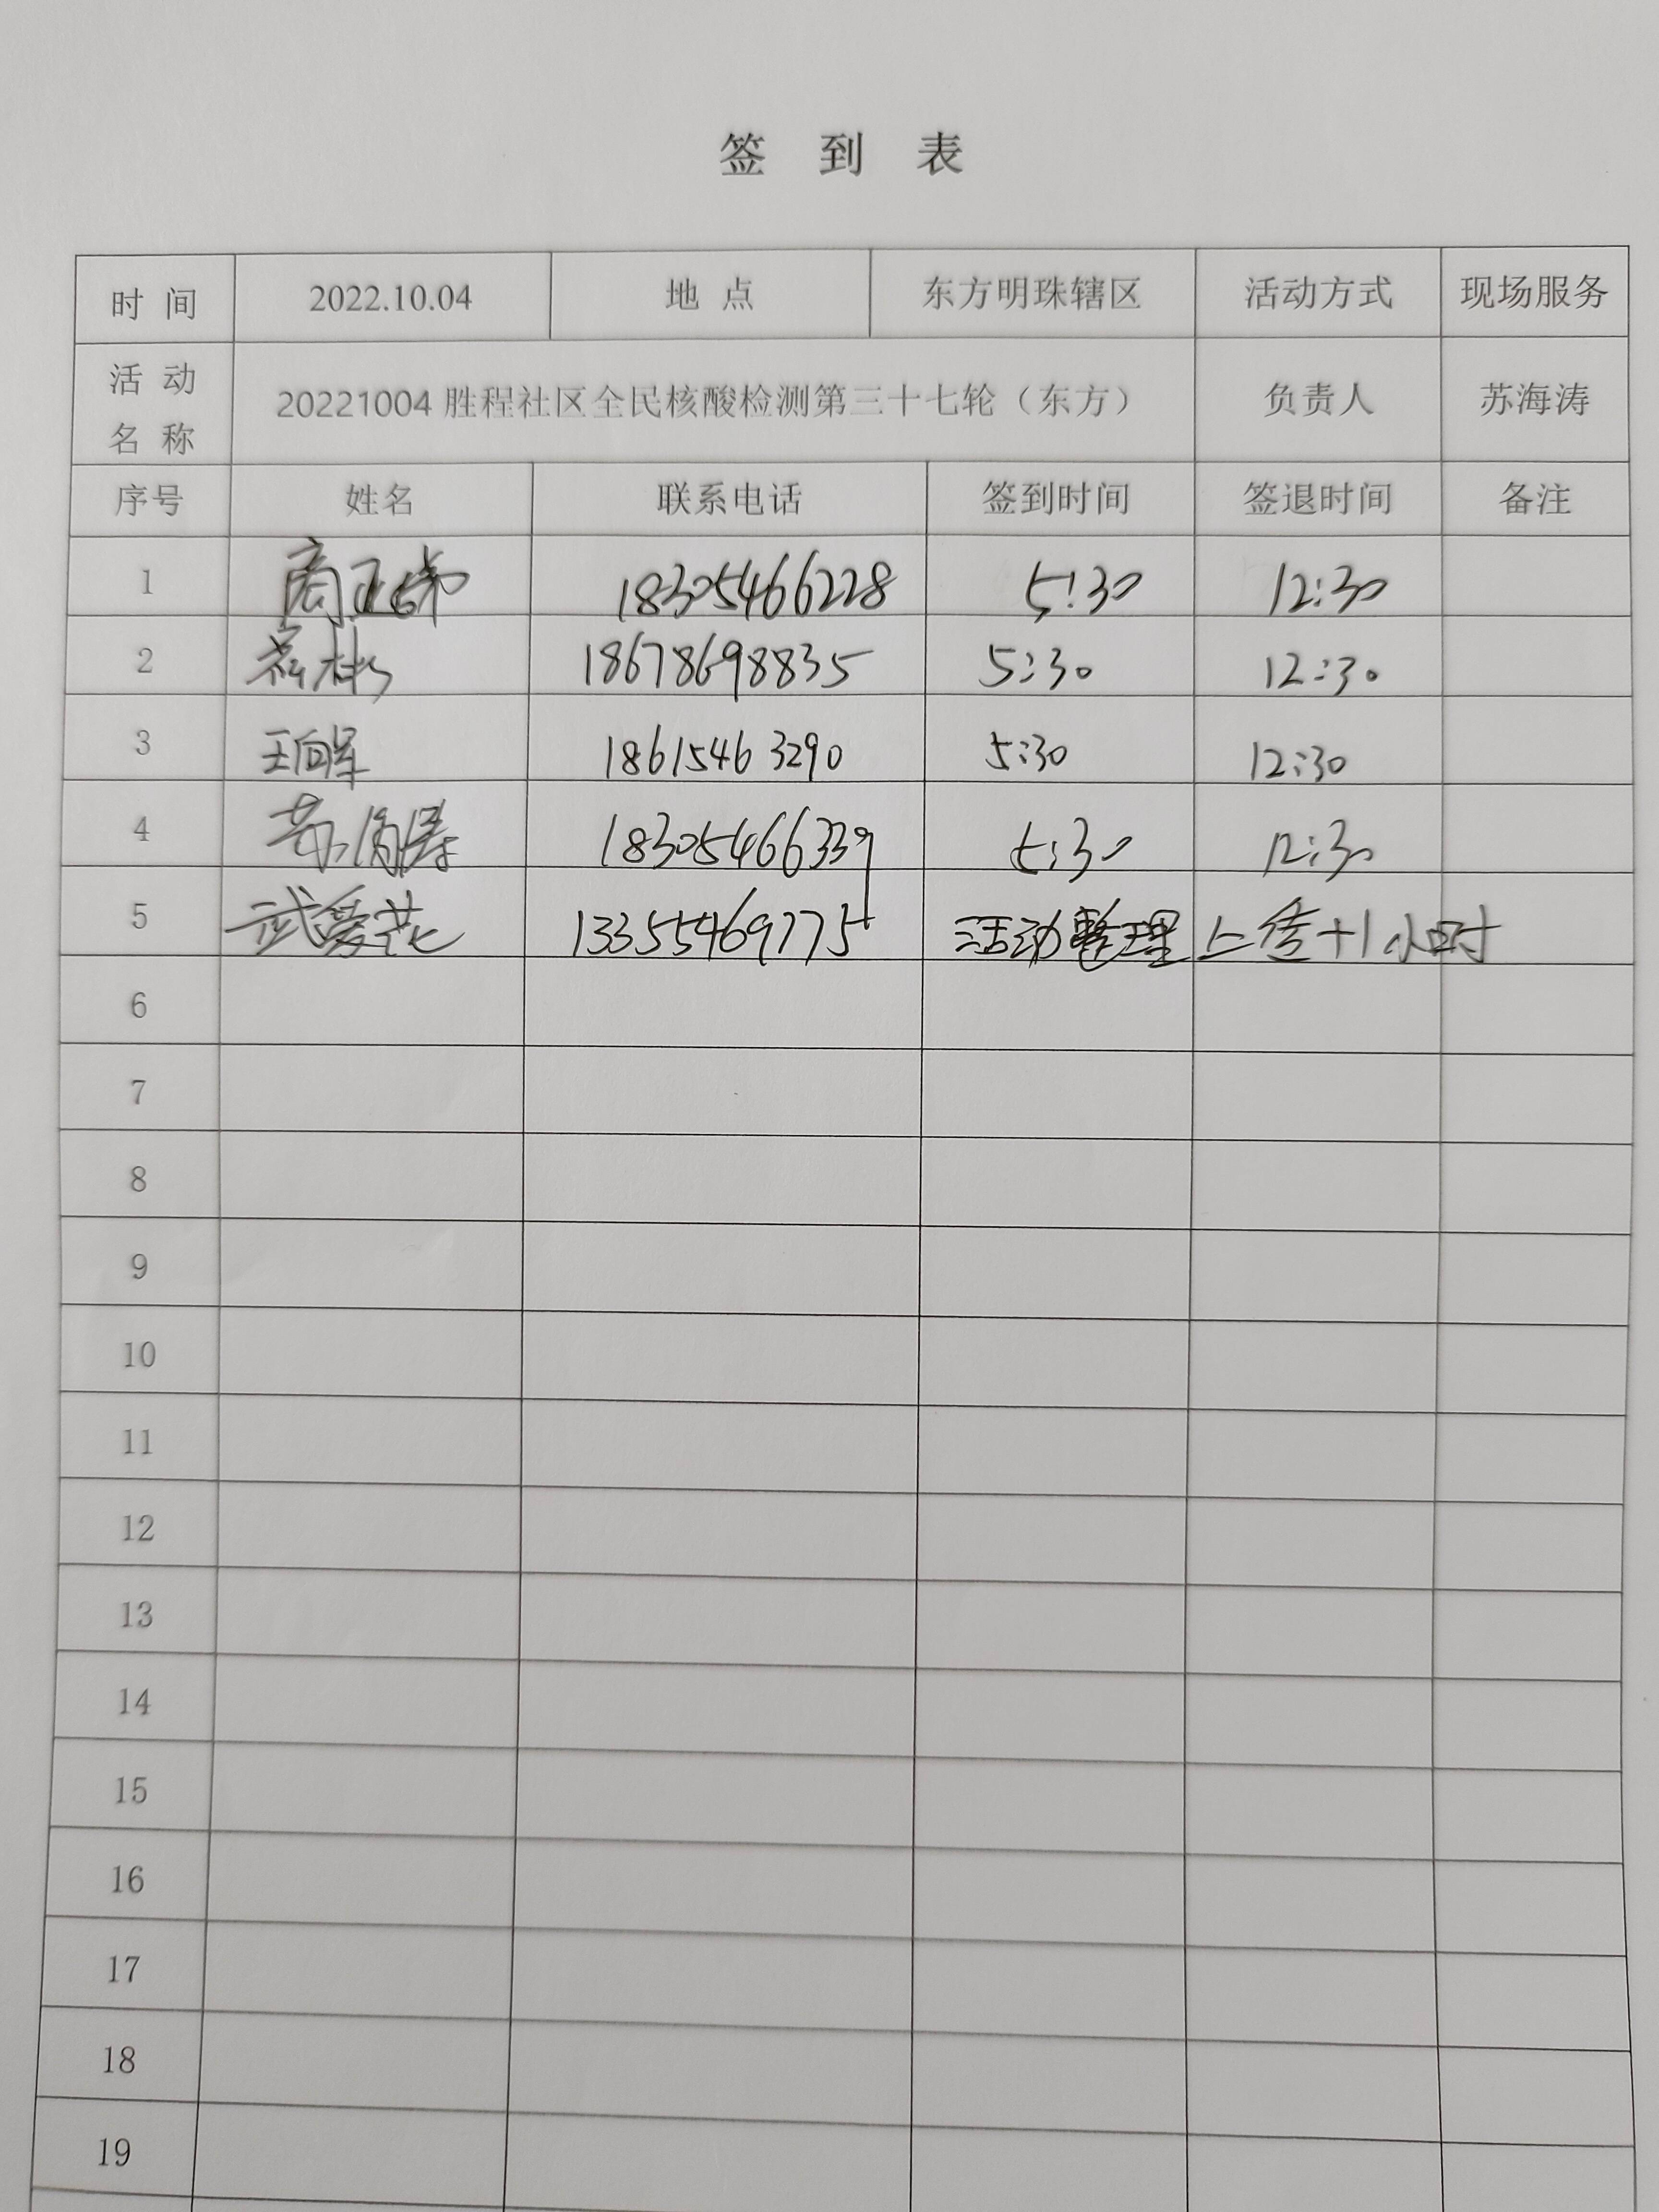 签 到 表
时 间 2022.10.04 地 点 东方明珠辖区 活动方式 现场服务
活 动 名 称 20221004 胜程社区全民核酸检测第三十七轮（东方） 负责人 苏海涛
序号 姓名 联系电话 签到时间 签退时间 备注
1 18305466228 5:30 12:30
2 18678698835 5:30 12:30
3 王向军 18615463290 5:30 12:30
4 苏海涛 18305466339 5:30 12:30
5 武爱花 13355469775 活动整理上传+1小时
6
7
8
9
10
11
12
13
14
15
16
17
18
19